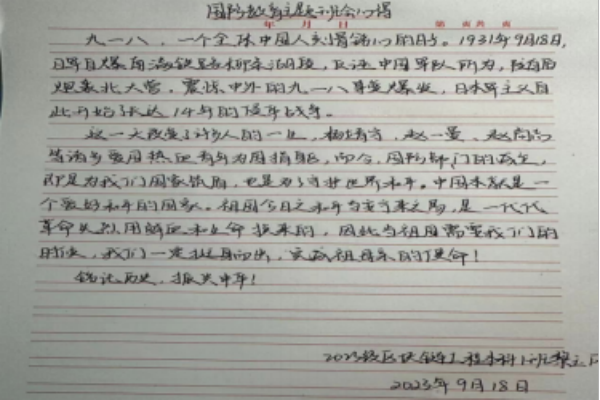 国防教育主题班会心得
年 月 日 第 页 共 页
九一八，一个全球中国人刻骨铭心的日子。1931年9月18日，
日军自爆南满铁路柳条湖段，反诬中国军队所为，随后
炮轰北大营。震惊中外的九一八事变爆发，日本军主义自
此开始了长达14年的侵华战争。
这一天改变了许多人的一生，杨靖宇，赵一曼，赵尚志
等许多爱国热血青年为国捐躯，而今，国防部门的成立，
即是为我们国家筑盾，也是为了守护世界和平。中国本就是一
个爱好和平的国家。祖国今日之和平与来之，是一代代
革命先烈用鲜血和生命换来的，因此当祖国需要我们的
时候，我们一定挺身而出，完成祖母亲的使命！
铭记历史，振兴中华！
2023级区块链工程本科1班黎
2023年9月18日